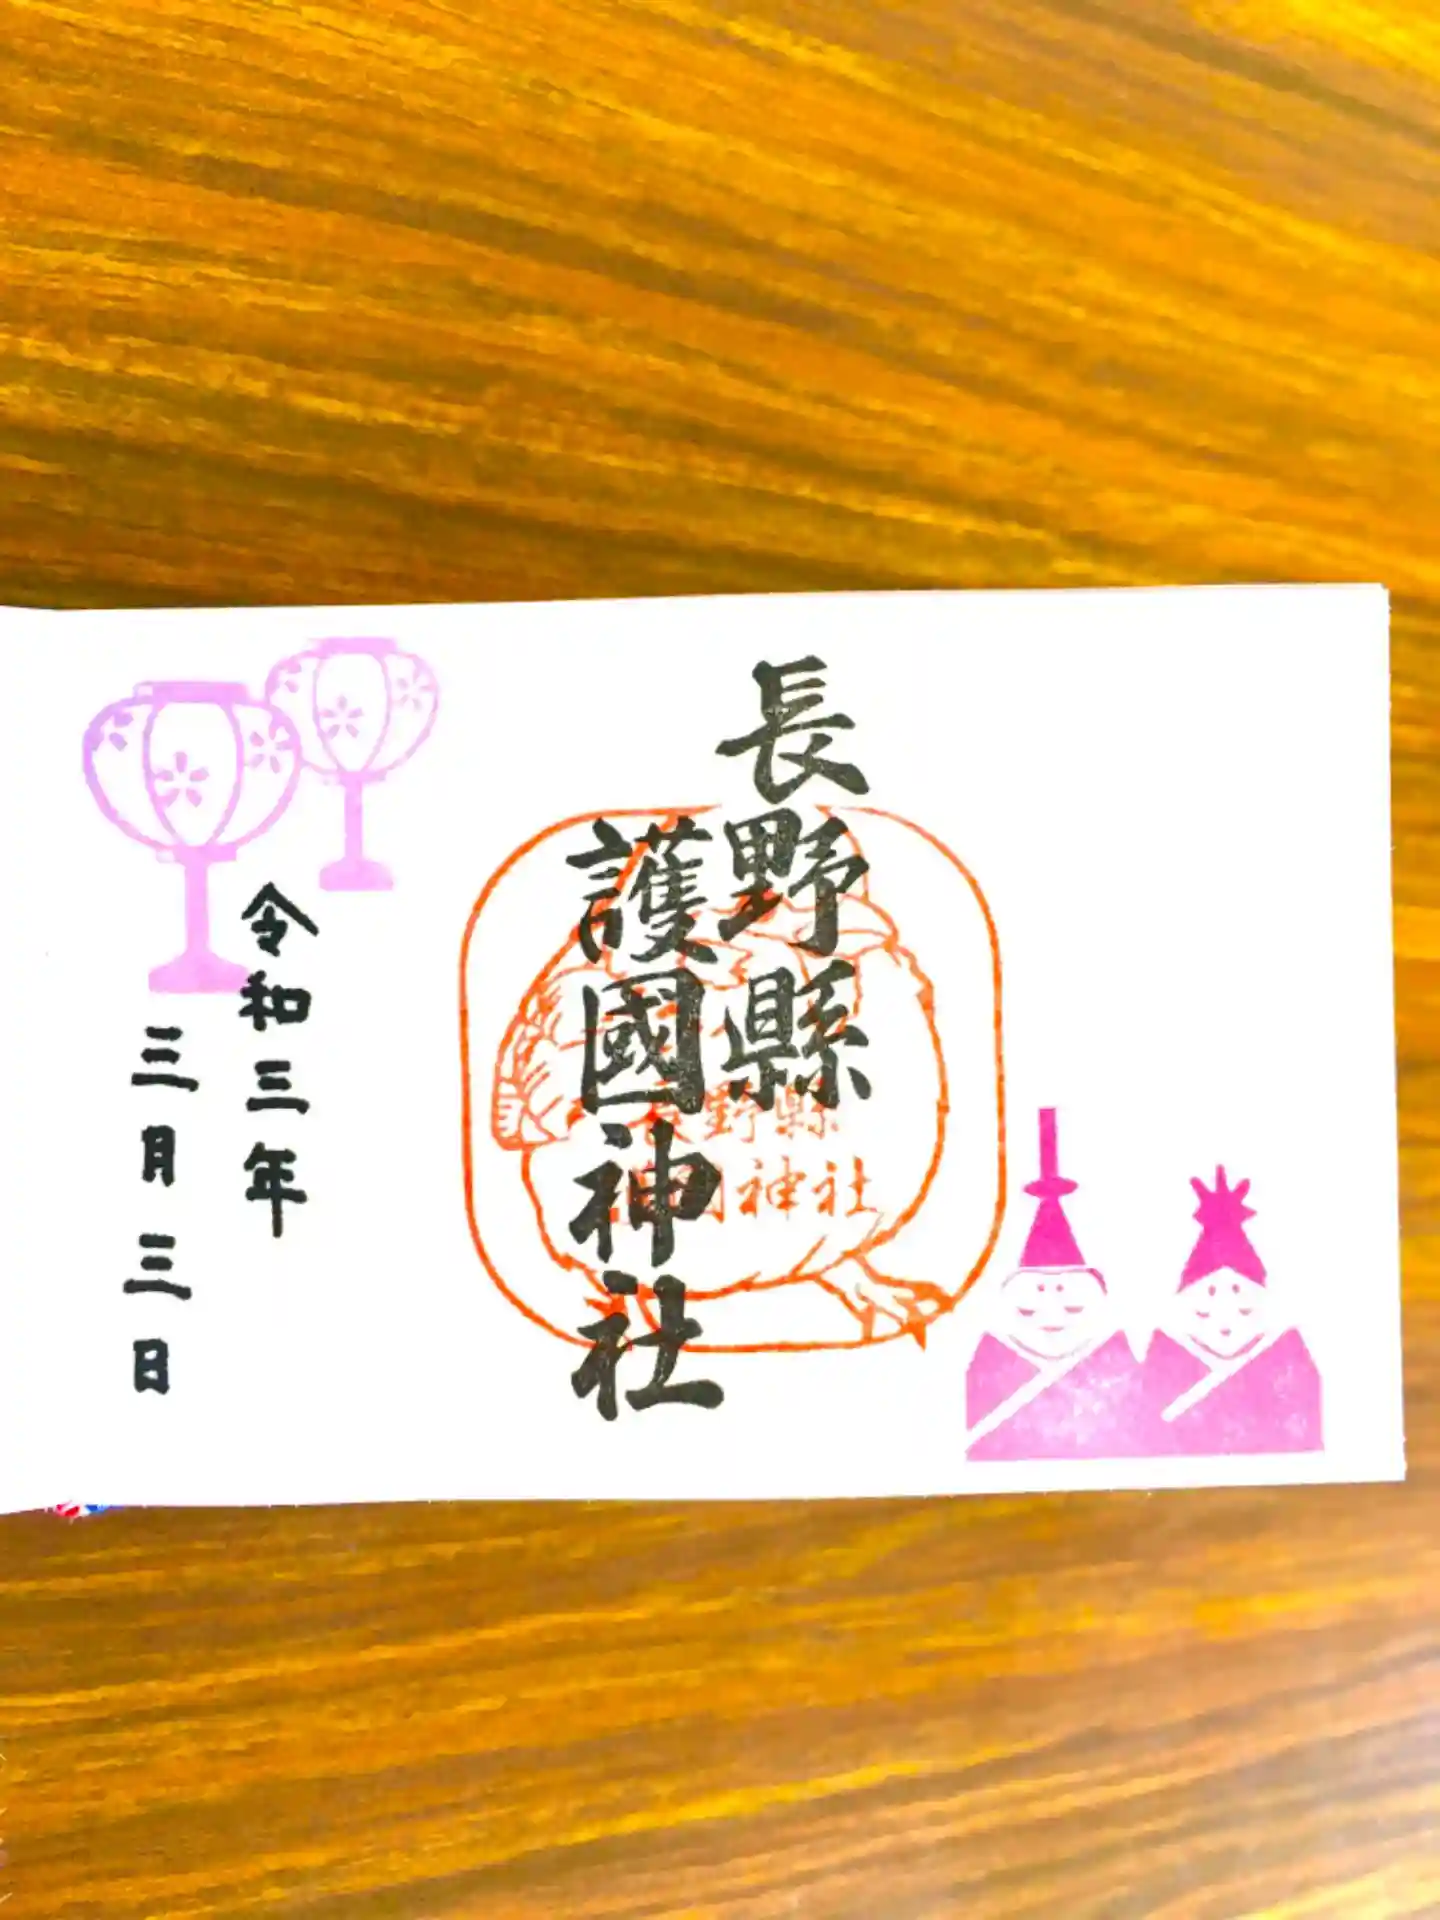 長野縣
護國神社
長野縣
神社
令和三年
三月三日